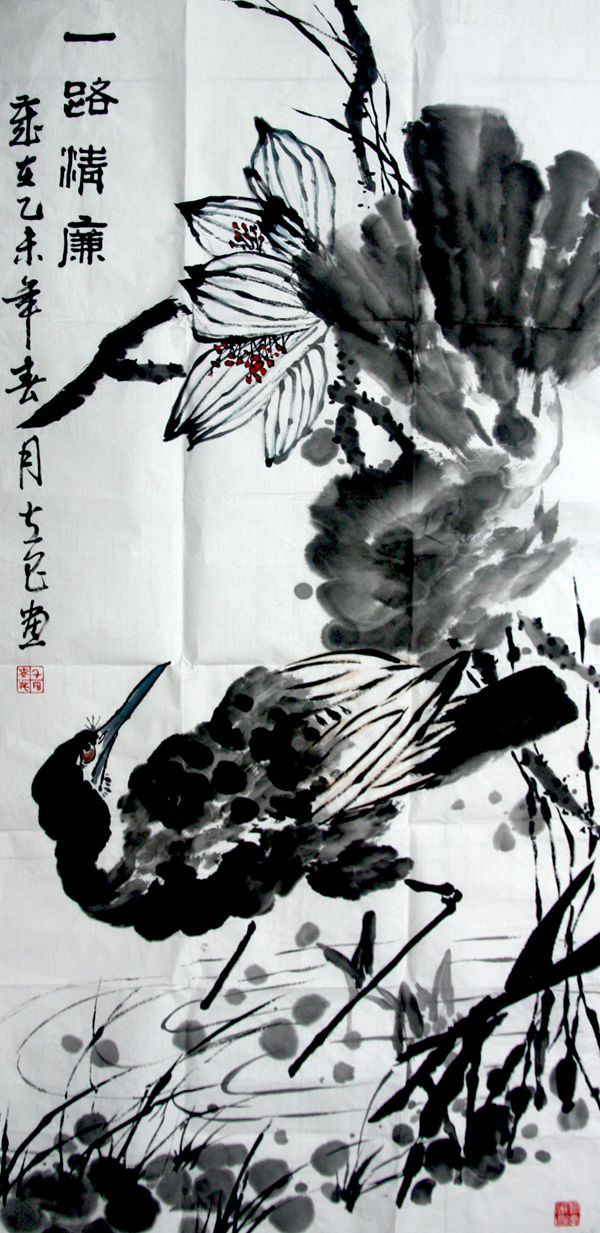 一路清廉
歲在乙未年春月画